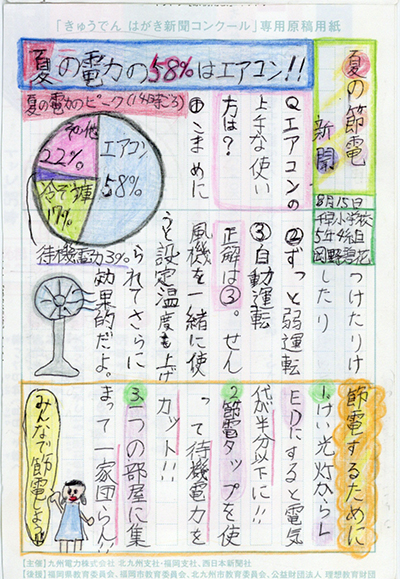 「きゅうでん はがき新聞コンクール」専用原稿用紙
夏の節電
新聞
8月15日
5年4組
夏の電力の58%はエアコン!!
夏の電力のピーク(14時ごろ)
エアコン
58%
その他
22%
冷ぞう庫
17%
待機電力3%
Qエアコンの
上手な使い
方は?
①こまめに
つけたりけ
したり
②ずっと弱運転
③自動運転
正解は③。せん
風機を一緒に使
うと設定温度も上げ
られてさらに
効果的だよ。
節電するために
1.けい光灯からL
EDにすると電気
代が半分以下に!!
2.節電タップを使
って待機電力を
カット!!
3.一つの部屋に集
まって一家団らん!!
みんなで節電しよう!!
【主催】九州電力株式会社 北九州支社・福岡支社、西日本新聞社
【後援】福岡県教育委員会、福岡市教育委員会、北九州市教育委員会、公益財団法人 理想教育財団